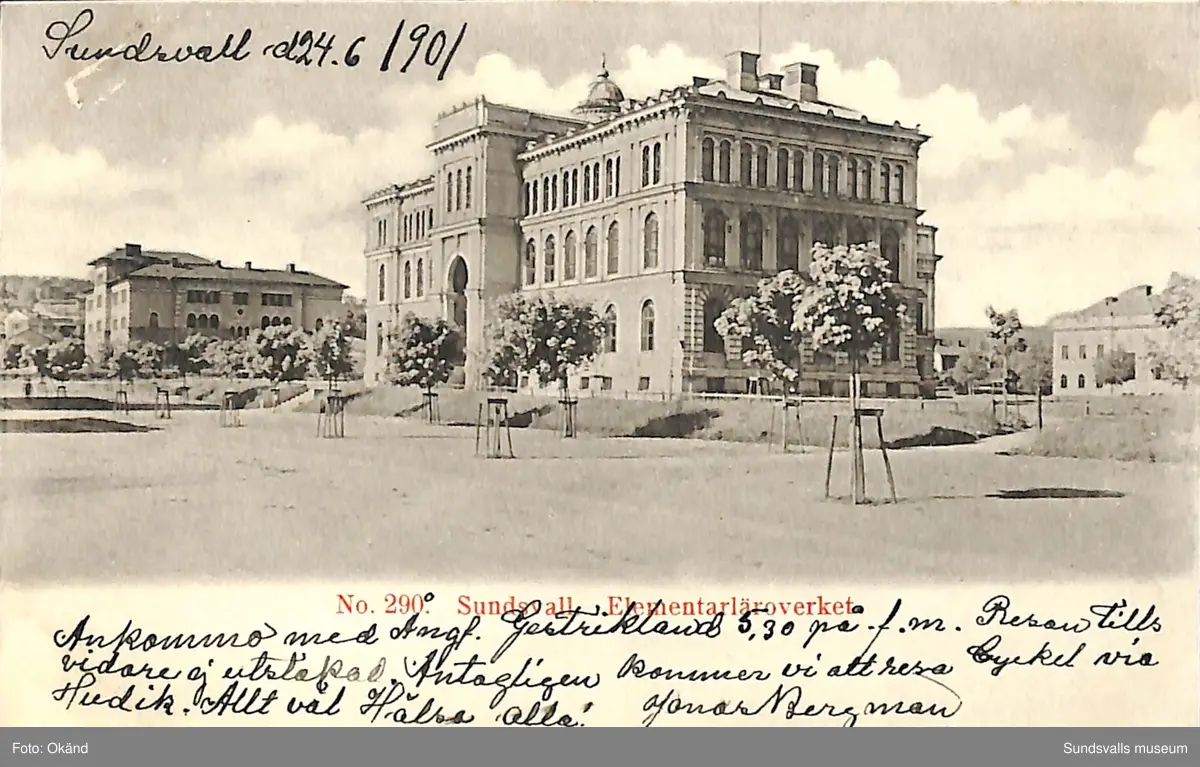 Sundsvall d24.6 1901
No. 290. Sundsvall. Elementarläroverket
Ankommo med Ångf. Gestrikland 5,30 på f.m. Resan tills
vidare ej utstakad. Antagligen kommer vi att resa Cyckel via
Hudik. Allt väl Hälsa alla!
Jonas Bergman
Foto: Okänd
Sundsvalls museum